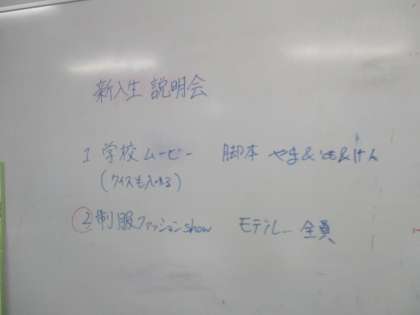 新入生 説明会
1 学校ムービー 脚本 やま&とも&けん
(クイズも入れる)
② 制服ファッションshow モデル— 全員